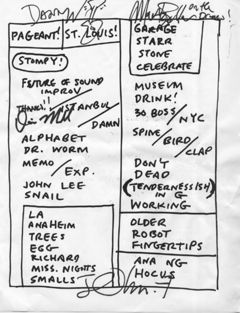 PAGEANT! ST. LOUIS!
STOMPY!
FUTURE OF SOUND
IMPROV/
ISTANBUL
/DAMN
ALPHABET
DR. WORM
MEMO/EXP.
JOHN LEE
SNAIL
LA
ANAHEIM
TREES
EGG
RICHARD
MISS. NIGHTS
SMALLS
GARAGE
STARR
STONE
CELEBRATE
MUSEUM
DRINK!
30 BOSS/NYC
SPINE/BIRD/CLAP
DON'T
DEAD
(TENDERNESS
IN G
WORKING
OLDER
ROBOT
FINGERTIPS
ANA NG
HOCUS